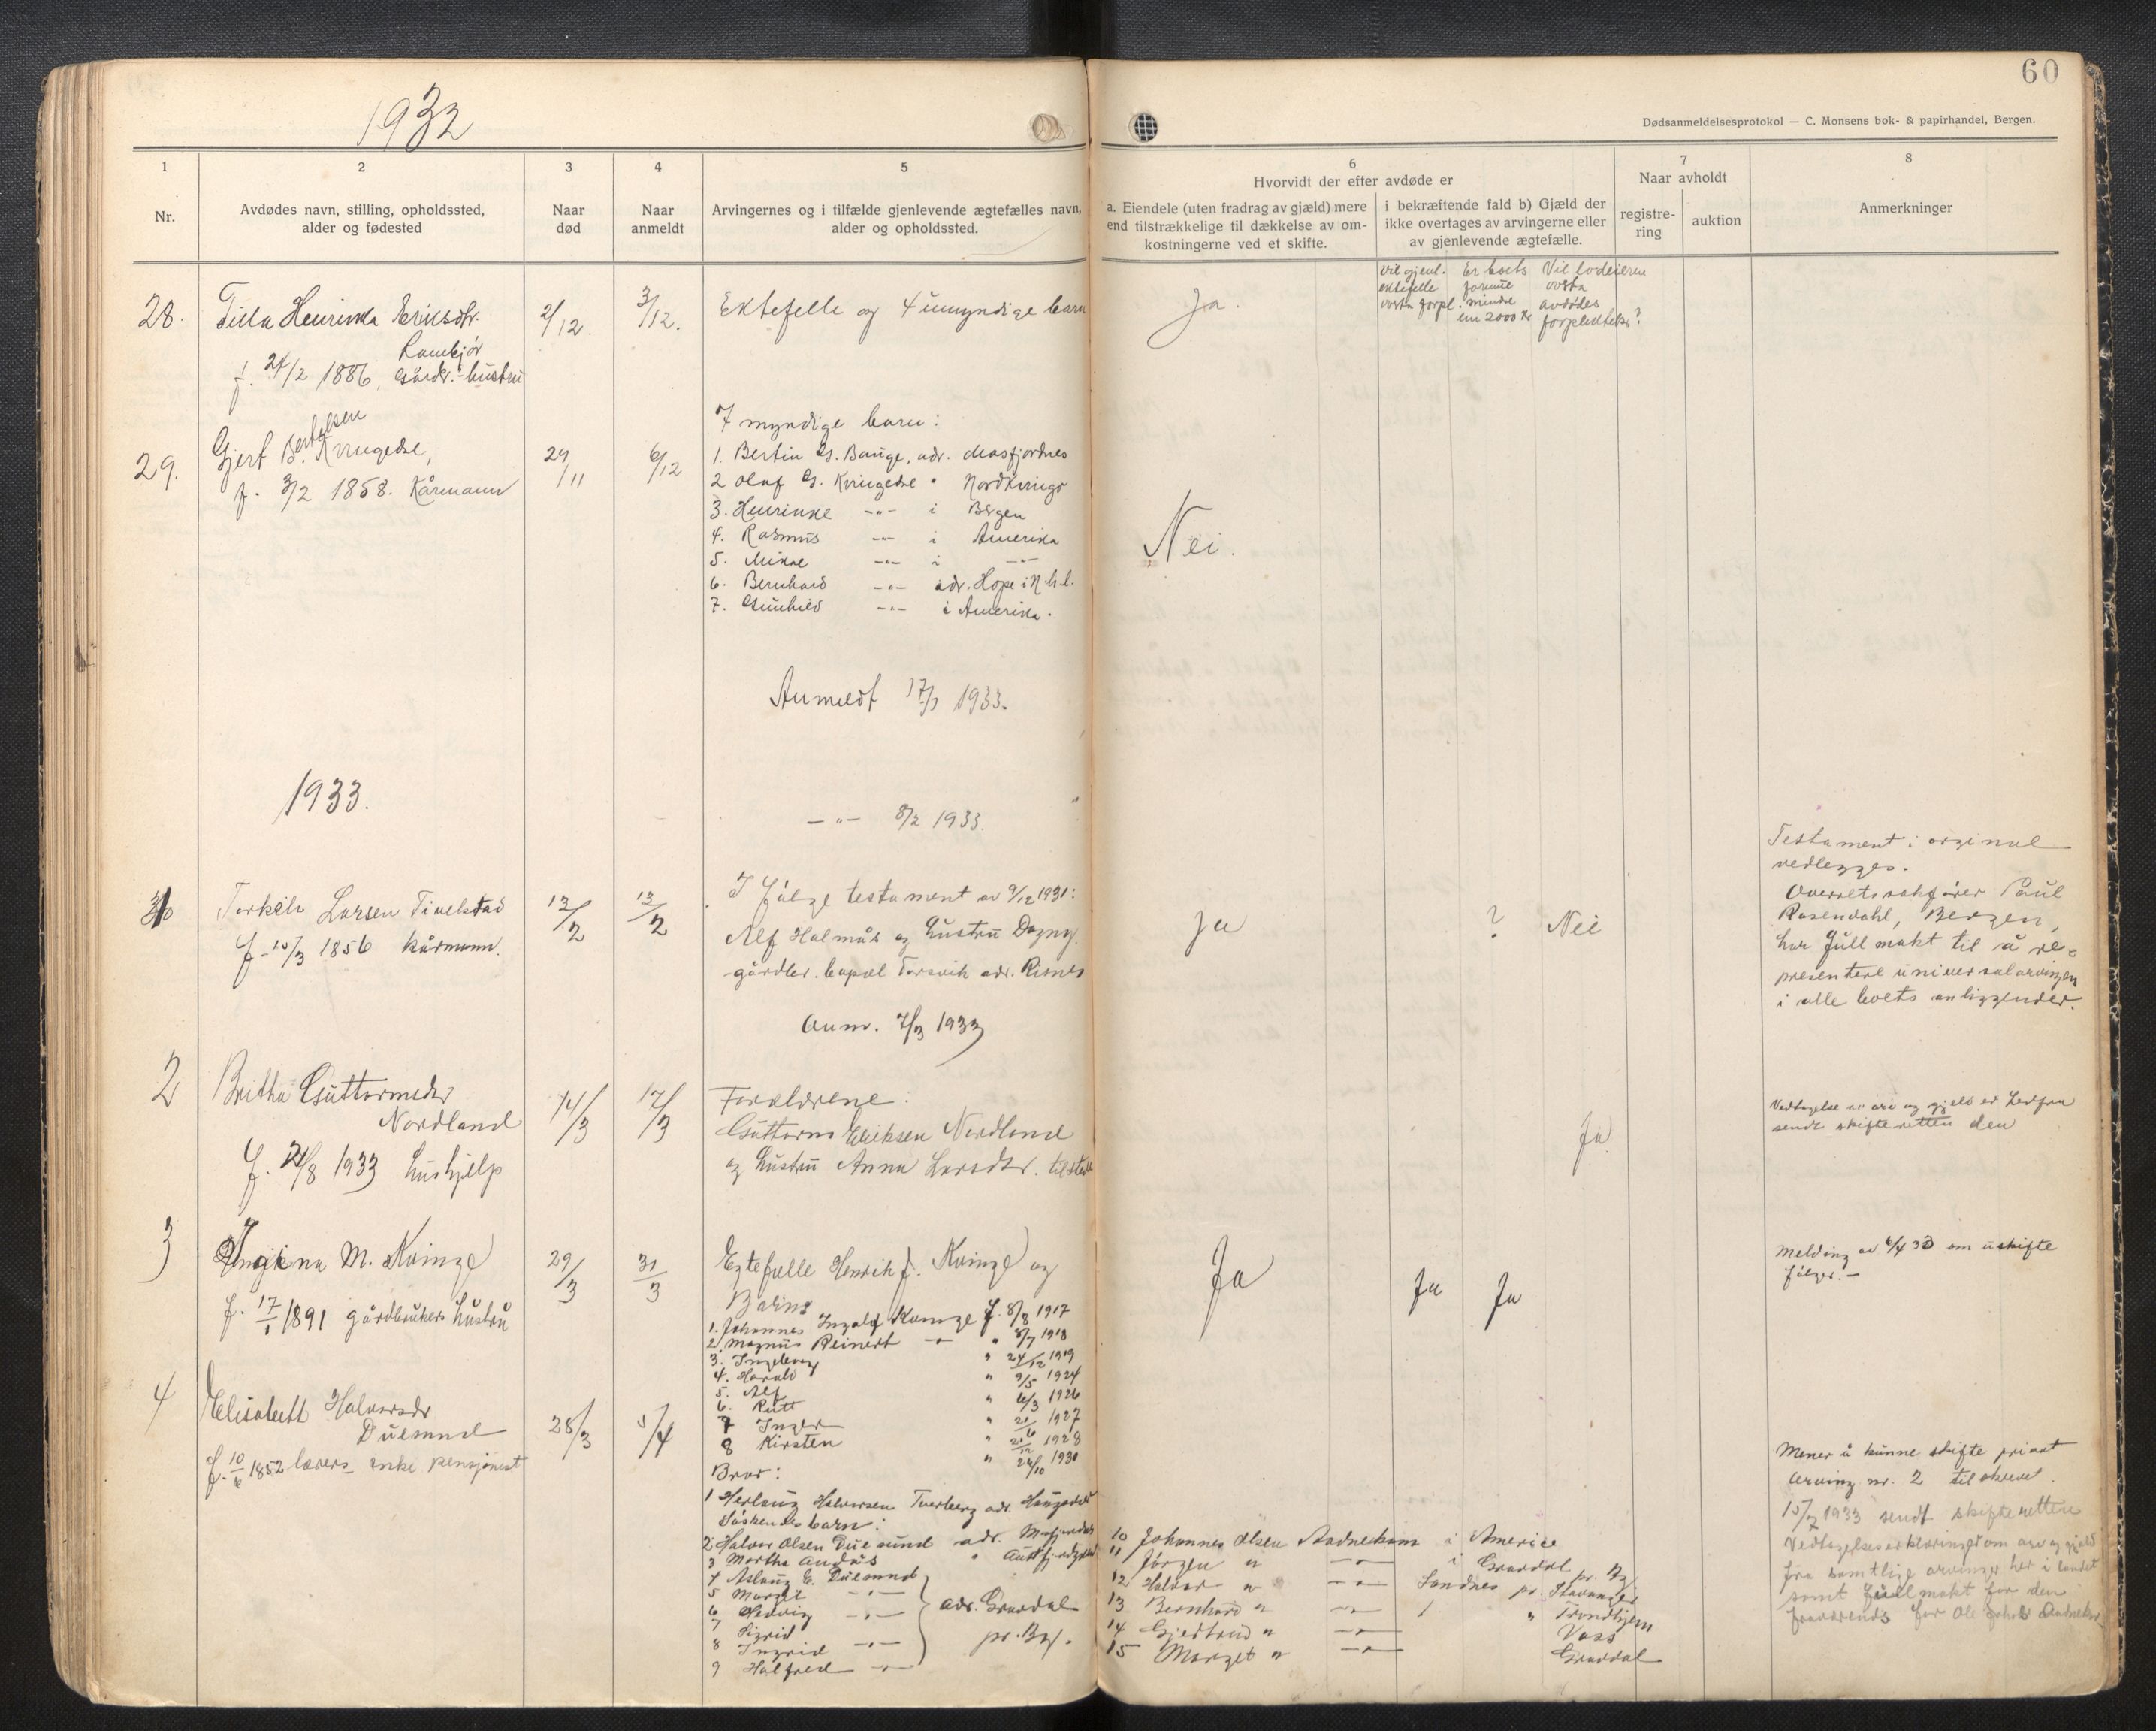 1932
60
Dødsanmeldelsesprotokol — C. Monsens bok- & papirhandel, Bergen.
1
2
3
4
5
6
7
8
Nr.
Avdødes navn, stilling, opholdssted,
alder og fødested
Naar
død
Naar
anmeldt
Arvingernes og i tilfælde gjenlevende ægtefælles navn,
alder og opholdssted.
Hvorvidt der efter avdøde er
a. Eiendele (uten fradrag av gjæld) mere
end tilstrækkelige til dækkelse av om-
kostningerne ved et skifte.
i bekræftende fald b) Gjæld der
ikke overtages av arvingerne eller
av gjenlevende ægtefælle.
Naar avholdt
registre-
ring
auktion
Anmerkninger
Vil gjenl.
ektefelle
overta forpl.
Er boets
formue
mindre
enn 2000 kr
Vil lodeierne
overta
avdødes
forpliktelser?
28.
Henrikka Eriksdtr.
f. 24/2 1886, Gårdbr.-hustru
2/12
3/12.
Ektefelle og 4 umyndige barn
Ja.
29.
Gjert Bertelsen Kvingedal,
f. 3/2 1858. Kårmann
29/11
6/12
7 myndige barn:
1. Bertin G. Bauge, adr. Masfjordnes
2 Olaf G. Kvingedal " Nordkvinge
3. Henrikke -"- i Bergen
4. Rasmus -"- i Amerika
5. Mikal -"- i -"-
6. Bernhard -"- adr. Hope i N.h.l.
7. Gunhild -"- i Amerika.
Nei.
Anmeldt 17/1 1933.
1933.
-"- 8/2 1933.
1
Larsen
f. 10/3 1856 kårmann.
12/2
13/2
I følge testament av 9/12 1931:
Alf Halmøs og hustru Dagny.
gårdbr. adr. Risnes
Ja
?
Nei
Testament i orginal
vedlegges.
Overretssakfører Paul
Rosendahl, Bergen,
har fullmakt til å re=
presentere universalarvingen
i alle boets anliggender.
Anm. 7/3 1933
2
Britha Guttormsdtr
Nordland
f. 21/8 1933 hushjelp
14/3
17/3
Foreldrene:
Guttorm Eriksen Nordland
og hustru Anna Larsdtr.
Ja.
Vedtagelse av arv og gjeld er herfra
sendt skifteretten den
3
M. Kvinge
f. 17/1 1891 gårdbrukers hustru
29/3
31/3
Egtefelle Henrik J. Kvinge og
Barn
1. Johannes Ingolf Kvinge f. 8/8 1917
2. Magnus Reinert -"- " 8/7 1918
3. Ingeborg " 24/12 1919
4. Harald " 9/5 1924
5. Alf " 6/3 1926
6. Rutt " 21/6 1927
7 Inger " 21/12 1928
8 Kirsten " 24/10 1930
Ja
Ja
Ja
Melding av 6/4 33 om uskifte
følger.-
4
Elisabeth Halvorsdr
Duesund
f. 10/6 1852 lærers- enke pensjonist
28/3
5/4
Bror:
1 Herlaug Halvorsen Tverberg adr.
Søskendebarn:
2 Halvor Olsen Duesund adr. Masfjorden
3 Martha Andås "
4 Aslaug E. Duesund
5 Margit -"-
6 Hedvig -"-
7 Sigrid
8 Ingrid -"-
9 Halfred -"-
adr. Granddal
pr. B.
10 Johannes Olsen Aadneskam i Americe
11 Jørgen " -"- i Granddal pr. B
12 Halvar " -"- Sandnes pr. Stavanger
13 Bernhard " -"- i " Trondhjem
14 Gjertrud " -"- Voss
15 Marget " -"- Granddal
Mener å kunne skifte privat
Arving nr. 2 tilskrevet.
15/7 1933 sendt skifteretten
Vedtagelseserklæringer om arv og gjæld
fra samtlige arvinger her i landet
samt fullmakt for den
fraværende for Ole